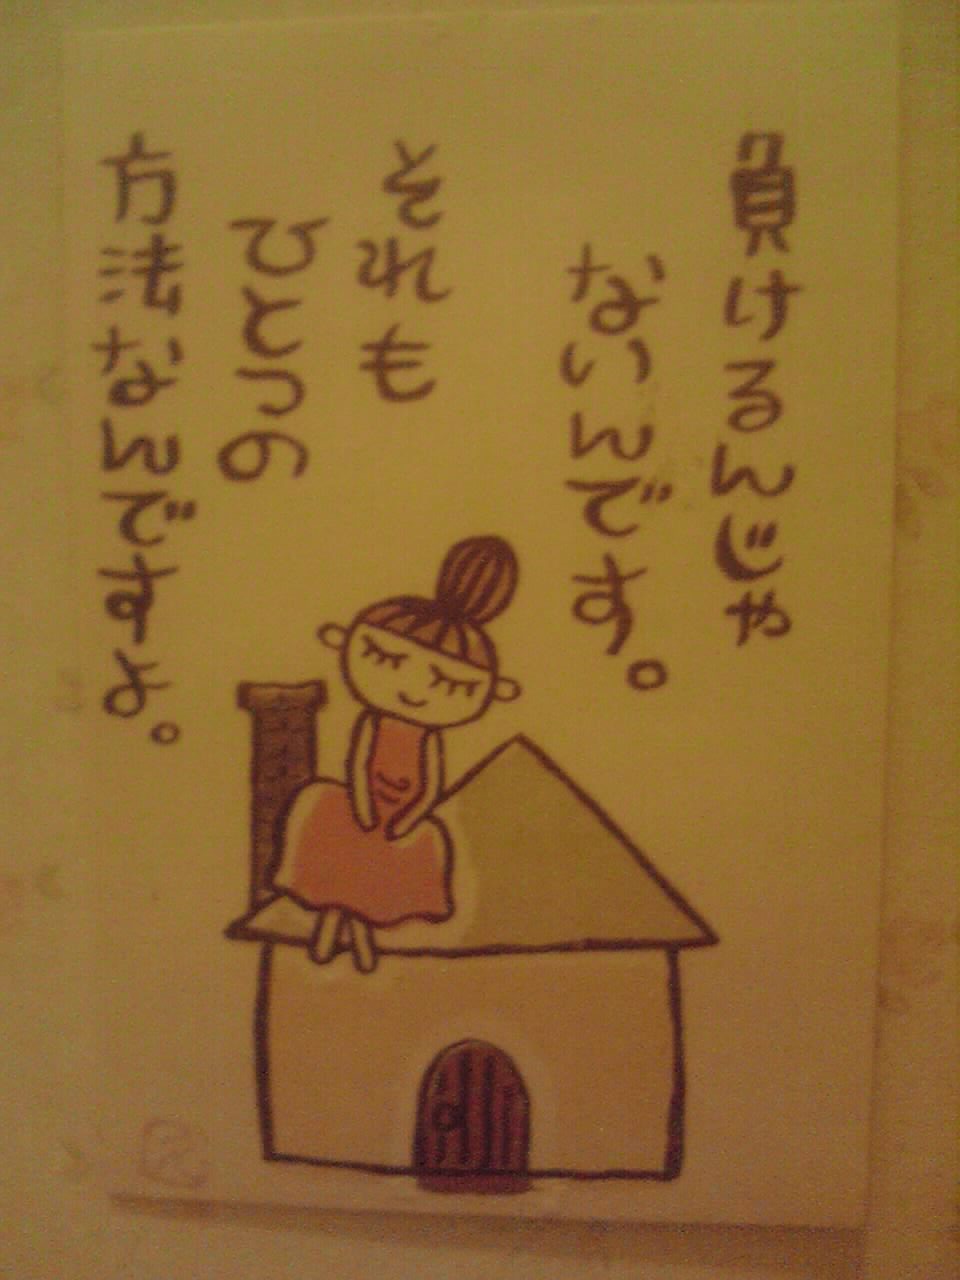 負けるんじゃ
ないんです。
それも
ひとつの
方法なんですよ。